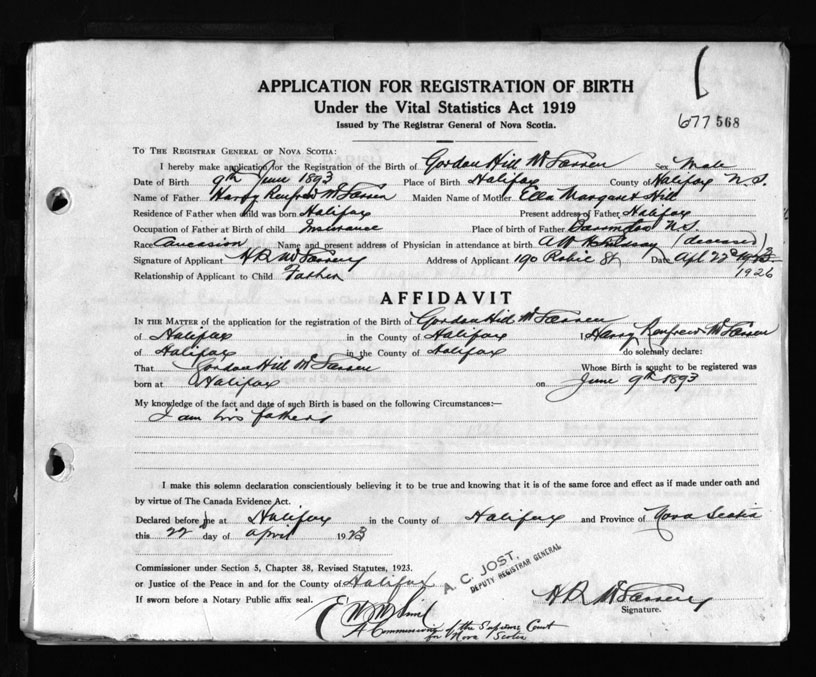 APPLICATION FOR REGISTRATION OF BIRTH
Under the Vital Statistics Act 1919
Issued by The Registrar General of Nova Scotia.
677 568
TO THE REGISTRAR GENERAL OF NOVA SCOTIA:
I hereby make application for the Registration of the Birth of Gordon Hill Sex Male
Date of Birth 9th June 1893 Place of Birth Halifax County of Halifax N.S.
Name of Father Harry Renfrew Maiden Name of Mother Ella Margaret Hill
Residence of Father when child was born Halifax Present address of Father Halifax
Occupation of Father at Birth of child Insurance Place of birth of Father N.S.
Race Caucasion Name and present address of Physician in attendance at birth (deceased)
Signature of Applicant H R Address of Applicant 190 Robie St Date Apl. 22
1926
Relationship of Applicant to Child Father
AFFIDAVIT
IN THE MATTER of the application for the registration of the Birth of Gordon Hill
of Halifax in the County of Halifax I Harry Renfrew
of Halifax in the County of Halifax do solemnly declare:
That Gordon Hill Whose Birth is sought to be registered was
born at Halifax on June 9th 1893
My knowledge of the fact and date of such Birth is based on the following Circumstances:—
I am his father
I make this solemn declaration conscientiously believing it to be true and knowing that it is of the same force and effect as if made under oath and
by virtue of The Canada Evidence Act.
Declared before me at Halifax in the County of Halifax and Province of Nova Scotia
this 22 day of April 1923
Commissioner under Section 5, Chapter 38, Revised Statutes, 1923.
or Justice of the Peace in and for the County of Halifax
A. C. JOST,
DEPUTY REGISTRAR GENERAL
If sworn before a Notary Public affix seal.
H R
Signature.
A Commissioner of the Supreme Court
for Nova Scotia